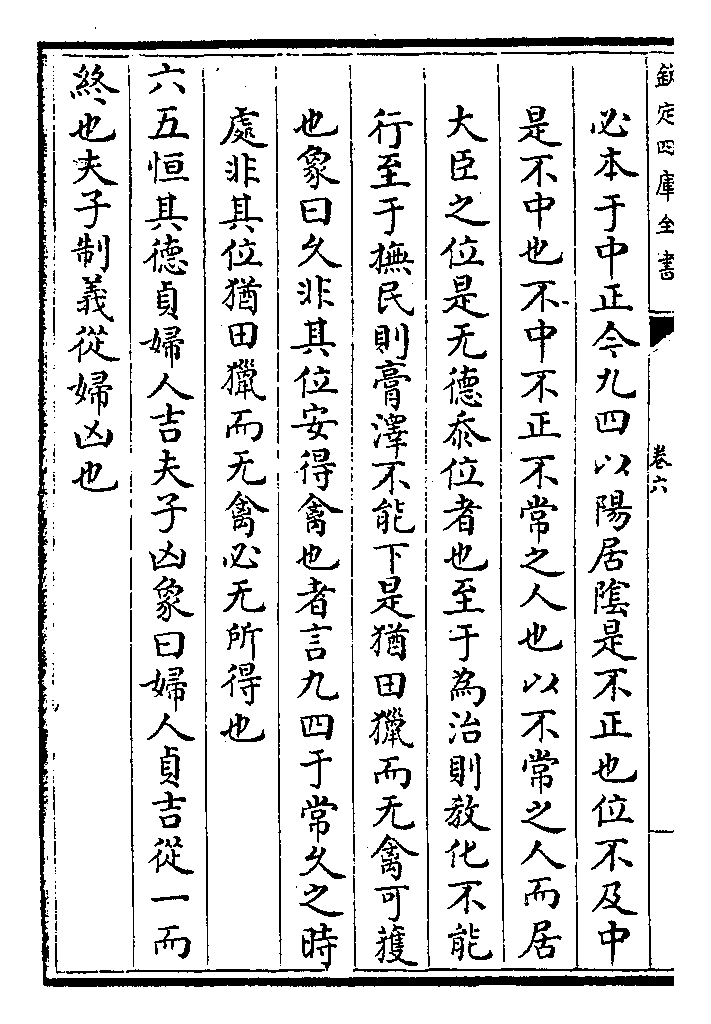 欽定四庫全書
卷六
必本于中正今九四以陽居陰是不正也位不及中
是不中也不中不正不常之人也以不常之人而居
大臣之位是无德忝位者也至于為治則教化不能
行至于撫民則膏澤不能下是猶田獵而无禽可獲
也象曰久非其位安得禽也者言九四于常久之時
處非其位猶田獵而无禽必无所得也
六五恒其德貞婦人吉夫子凶象曰婦人貞吉從一而
終也夫子制義從婦凶也